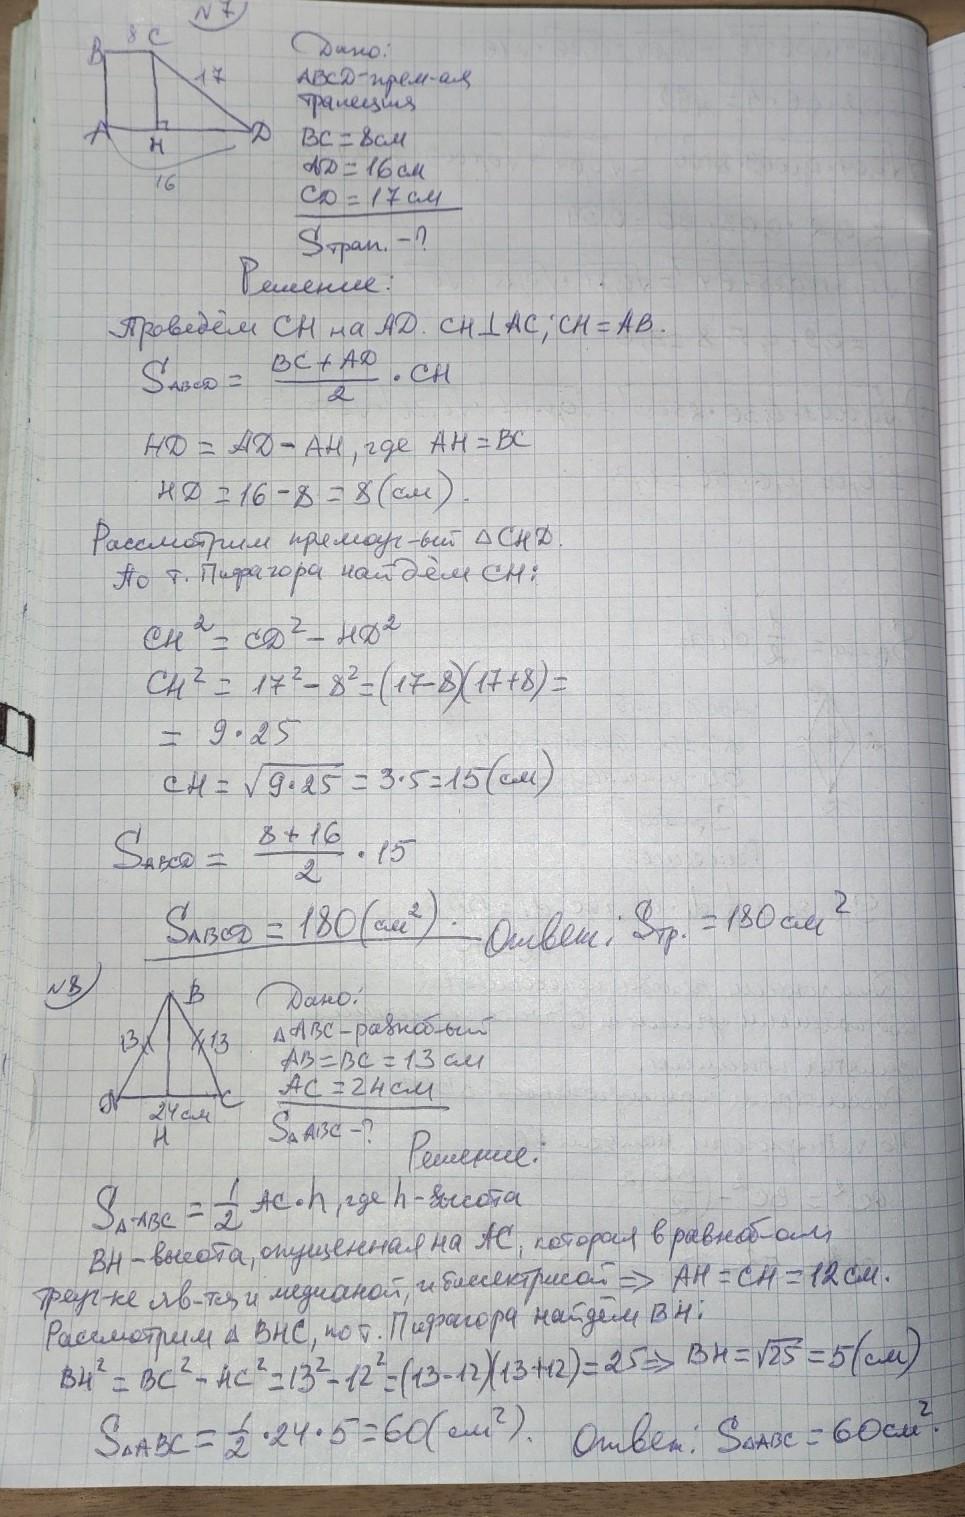 №7
B 8 C
17
A H D
16
Дано:
ABCD-прям-ая
трапеция
BC = 8см
AD = 16см
CD = 17см
Sтрап. - ?
Решение:
Проведём CH на AD. CH⊥AC; CH = AB.
SABCD = (BC + AD)/2 · CH
HD = AD - AH, где AH = BC
HD = 16 - 8 = 8(см).
Рассмотрим прямоуг-ый △CHD.
По т. Пифагора найдём CH:
CH² = CD² - HD²
CH² = 17² - 8² = (17-8)(17+8) =
= 9·25
CH = √9·25 = 3·5 = 15(см)
SABCD = (8 + 16)/2 · 15
SABCD = 180(см²). Ответ: Sтр. = 180см²
№8
B
13 13
A C
24см
H
Дано:
△ABC-равноб-ый
AB = BC = 13см
AC = 24см
S△ABC - ?
Решение:
S△ABC = 1/2 AC·h, где h-высота
BH-высота, опущенная на AC, которая в равноб-ом
треуг-ке яв-тся и медианой, и биссектрисой ⇒ AH = CH = 12см.
Рассмотрим △ BHC, по т. Пифагора найдём BH:
BH² = BC² - HC² = 13² - 12² = (13-12)(13+12) = 25 ⇒ BH = √25 = 5(см)
S△ABC = 1/2 · 24 · 5 = 60(см²). Ответ: S△ABC = 60см².